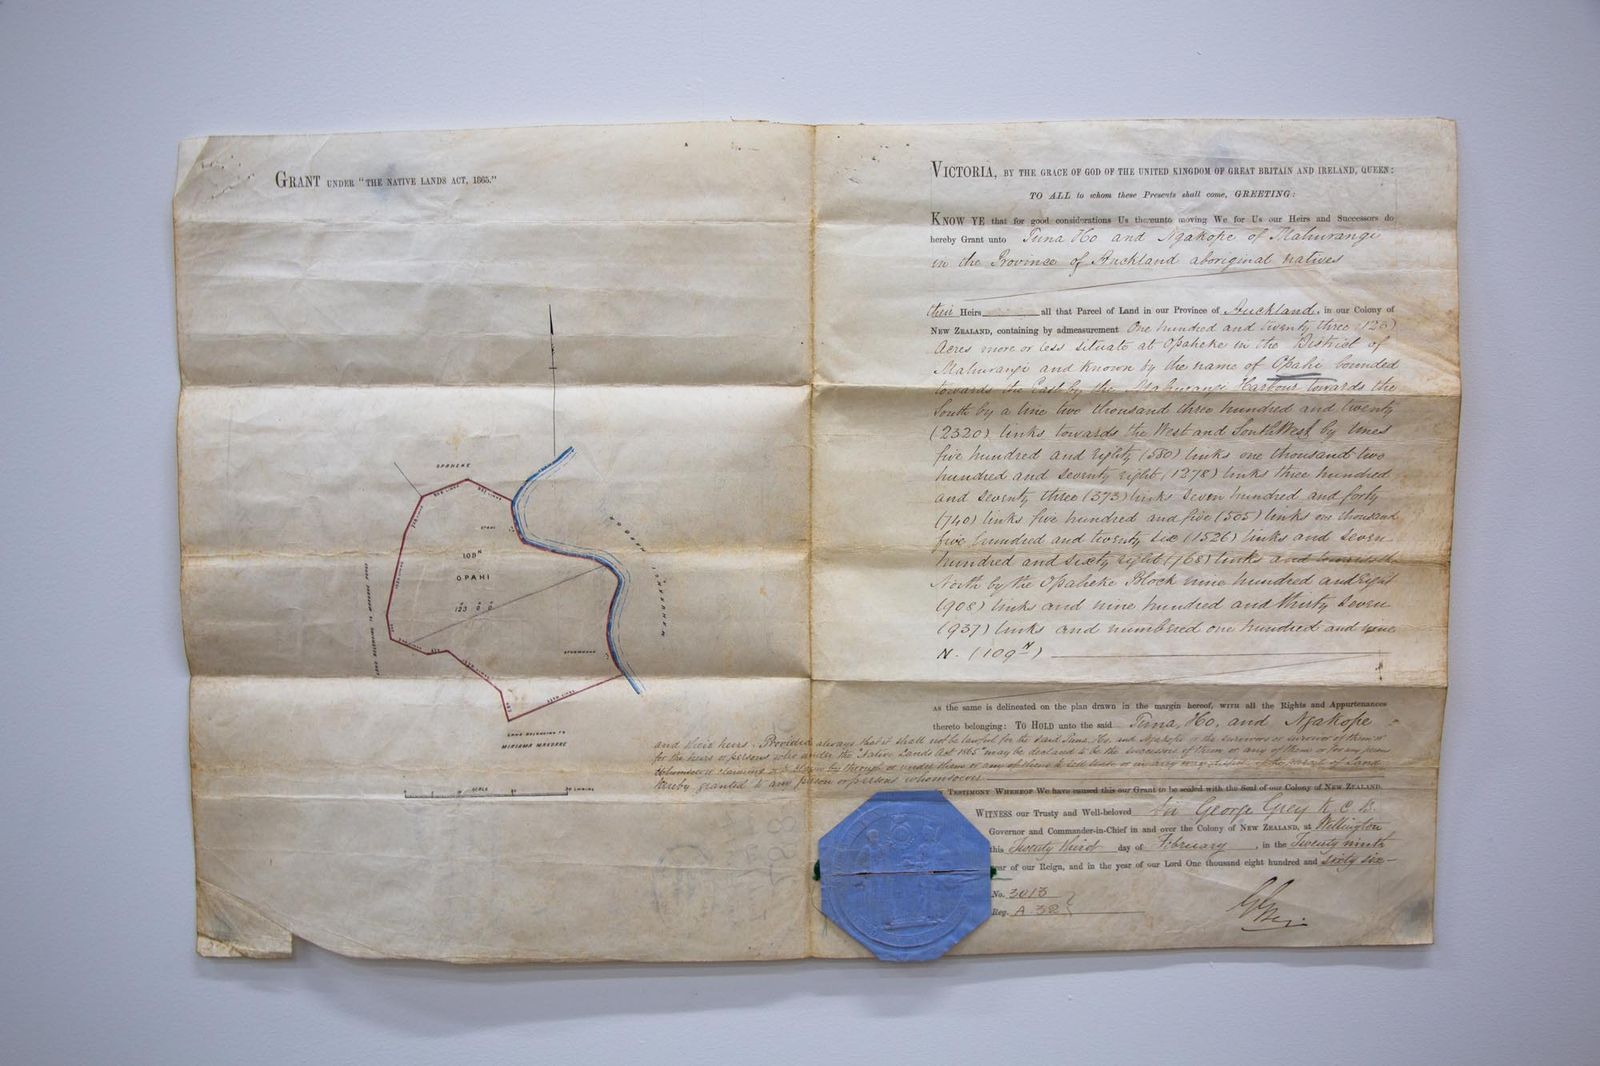 GRANT UNDER "THE NATIVE LANDS ACT, 1865."
OPAHEKE
OPAHI
109 N
OPAHI
123 0 0
MAHURANGI HARBOUR
LAND BELONGING TO
MIRIAMA
SCALE
VICTORIA, BY THE GRACE OF GOD OF THE UNITED KINGDOM OF GREAT BRITAIN AND IRELAND, QUEEN:
TO ALL to whom these Presents shall come, GREETING:
KNOW YE that for good considerations Us thereunto moving We for Us our Heirs and Successors do
hereby Grant unto Tuna Ho and Ngakope of Mahurangi
in the Province of Auckland aboriginal natives
their Heirs all that Parcel of Land in our Province of Auckland, in our Colony of
NEW ZEALAND, containing by admeasurement One hundred and twenty three (123)
Acres more or less situate at Opaheke in the District of
Mahurangi and known by the name of Opahi bounded
towards the East by the Mahurangi Harbour towards the
South by a line two thousand three hundred and twenty
(2320) links towards the West and South West by lines
five hundred and eighty (580) links one thousand two
hundred and seventy eight (1278) links three hundred
and seventy three (373) links seven hundred and forty
(740) links five hundred and five (505) links one thousand
five hundred and twenty six (1526) links and seven
hundred and sixty eight (768) links and towards the
North by the Opaheke Block nine hundred and eight
(908) links and nine hundred and thirty seven
(937) links and numbered one hundred and nine
N. (109 N)
AS the same is delineated on the plan drawn in the margin hereof, WITH all the Rights and Appurtenances
thereto belonging: TO HOLD unto the said Tuna, Ho, and Ngakope
and their heirs. Provided always that it shall not be lawful for the said Tuna Ho, and Ngakope or the survivors or survivor of them or
for the heirs or persons who under the "Native Lands Act 1865" may be declared to be the successors of them or any of them or for any person
claiming by through or under them or any of them to sell lease or in any way dispose of the parcel of Land
hereby granted to any person or persons whomsoever.
TESTIMONY WHEREOF We have caused this our Grant to be sealed with the Seal of our Colony of NEW ZEALAND.
WITNESS our Trusty and Well-beloved Sir George Grey K.C.B.
Governor and Commander-in-Chief in and over the Colony of NEW ZEALAND, at Wellington
this Twenty third day of February, in the Twenty ninth
year of our Reign, and in the year of our Lord One thousand eight hundred and sixty six
No. 3013
Reg. A 32